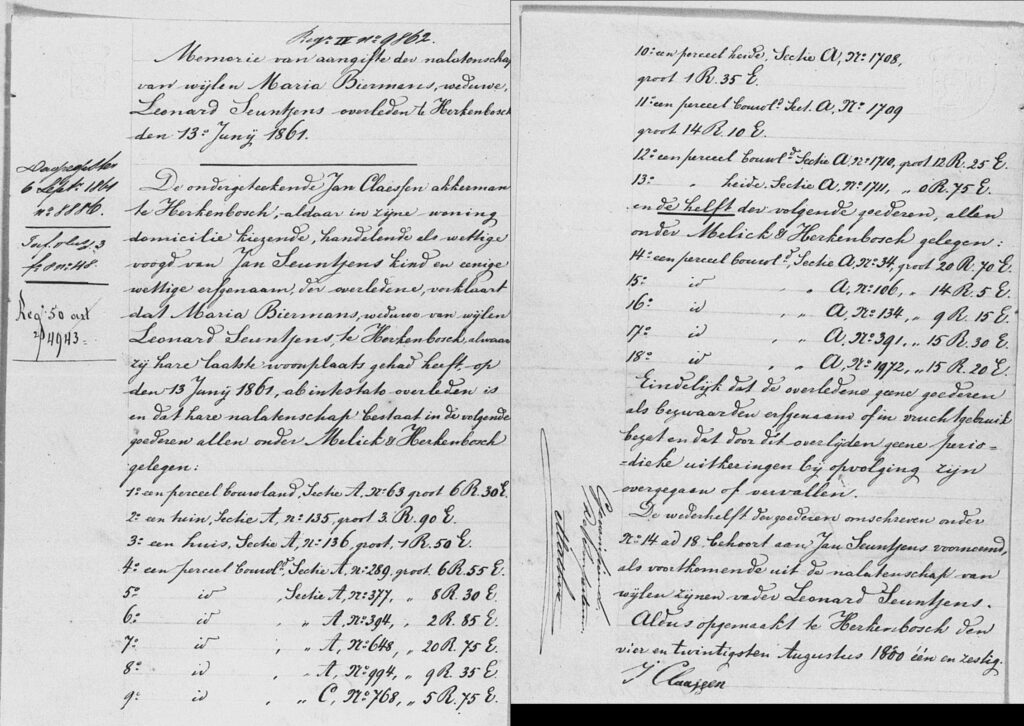 Reg: II no 9862.
Memorie van aangifte der nalatenschap
van wijlen Maria Biermans, weduwe,
Leonard Seuntjens overleden te Herkenbosch
den 13n Junij 1861.
6 Sept: 1861
no 8886.
fo no: 48.
Reg: 50 art
4943.
De ondergeteekende Jan Claessen akkerman
te Herkenbosch, aldaar in zijne woning
domicilie kiezende, handelende als wettige
voogd van Jan Seuntjens kind en eenige
wettige erfgenaam, der overledene, verklaart
dat Maria Biermans, weduwe van wijlen
Leonard Seuntjens, te Herkenbosch, alwaar
zij hare laatste woonplaats gehad heeft, op
den 13 Junij 1861, ab intestato overleden is
en dat hare nalatenschap bestaat in de volgende
goederen allen onder Melick & Herkenbosch
gelegen:
1o een perceel bouwland, Sectie A, No 63 groot 6 R. 30 E.
2o een tuin, Sectie A, no 135, groot 3. R. 90 E.
3o een huis, Sectie A, no 136, groot, 1 R. 50 E.
4o een perceel bouwld Sectie A, no 289, groot 6 R. 55 E.
5o id Sectie A, No 377, „ 8 R. 30 E
6o id „ „ A, No 394, „ 2 R. 85 E.
7o id „ „ A, No 648, „ 20 R. 75 E.
8o id „ „ A, No 994, „ 9 R. 35 E.
9o id „ „ C, No 768, „ 5 R. 75 E.
10o een perceel heide, Sectie A, No 1708,
groot 1 R. 35 E.
11o een perceel bouwld Sect. A, No 1709
groot 14 R. 10 E.
12o een perceel bouwld Sectie A, no 1710, groot 12 R. 25 E.
13o „ heide, Sectie A, no 1711, „ 0 R. 75 E.
en de helft der volgende goederen, allen
onder Melick & Herkenbosch gelegen:
14o een perceel bouwld, Sectie A, No 34, groot 20 R. 70 E.
15o id „ „ A, no 106, „ 14 R. 5 E.
16o id „ „ A, no 134, „ 9 R. 15 E.
17o id „ „ A, no 391, „ 15 R. 30 E.
18o id „ „ A, no 1972, „ 15 R. 20 E.
Eindelijk dat de overledene geene goederen
als bezwaarden erfgenaam of in vruchtgebruik
bezat en dat door dit overlijden geene perio-
-dieke uitkeringen bij opvolging zijn
overgegaan of vervallen.
De wederhelft der goederen omschreven onder
No 14 ad 18. behoort aan Jan Seuntjens voornoemd,
als voortkomende uit de nalatenschap van
wijlen zijnen vader Leonard Seuntjens.
Aldus opgemaakt te Herkenbosch den
vier en twintigsten Augustus 1800 één en zestig.
J Claassen